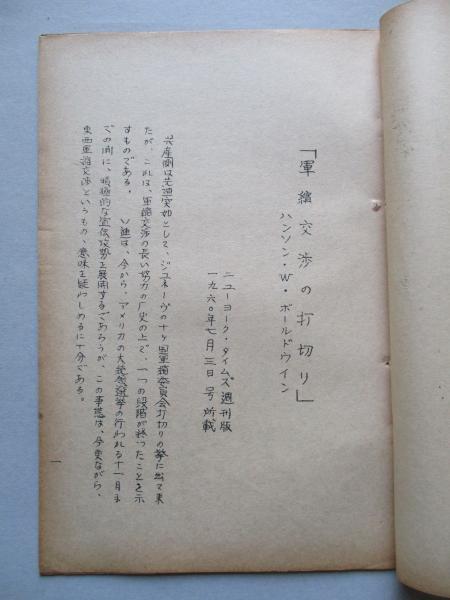 「軍縮交渉の打切り」
ハンソン・W・ボールドウイン
ニューヨーク・タイムズ週刊版
一九六〇年七月三日号所載
共産側は先週突如として、ジュネーヴの十ヶ国軍縮委員会打切りの挙に出て来
たが、これは、軍縮交渉の長い協力の厂史の上で、一つの段階が終ったことを示
すものである。 ソ連は、今から、アメリカの大統領選挙の行われる十一月ま
での間に、積極的な宣伝攻勢を展開するであろうが、この事態は、今更ながら、
東西軍縮交渉というもの、意味を疑わしめるに十分である。
一